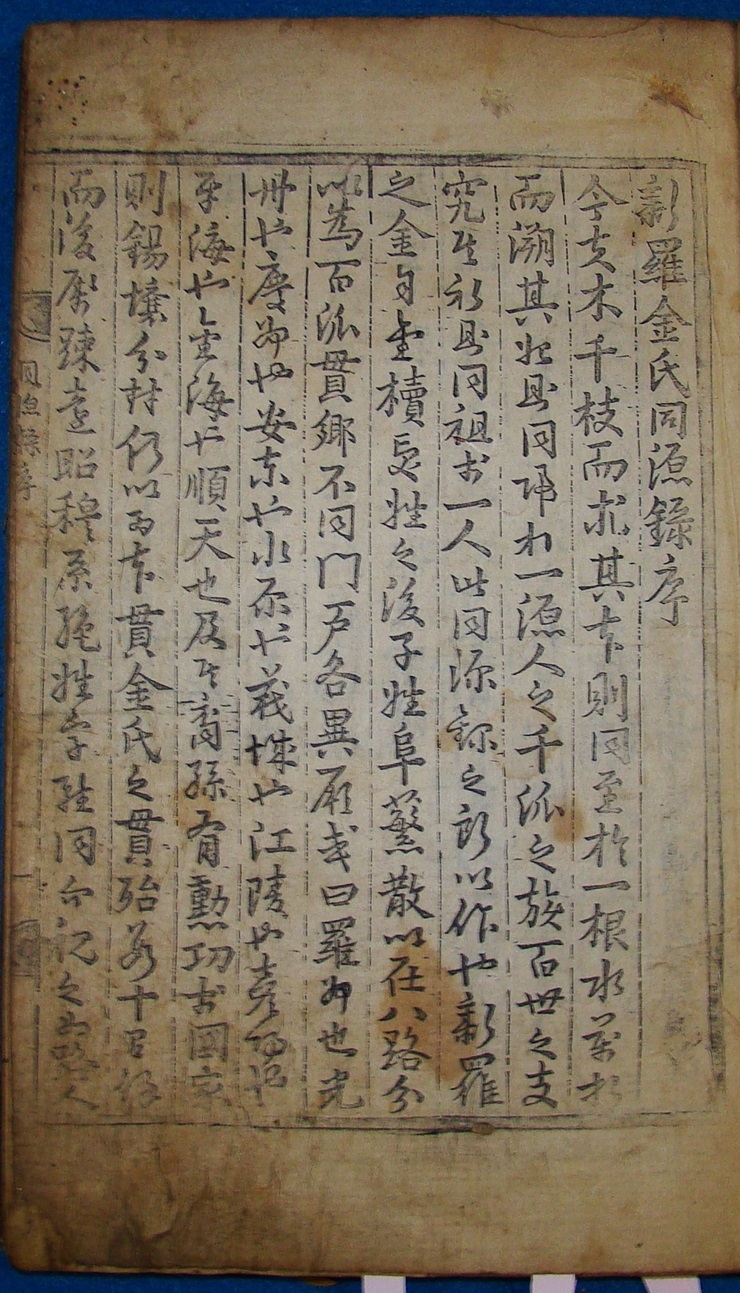 新羅金氏同源錄序
今夫木千枝而求其本則同至於一根水萬
而溯其 則同歸於一源人之千派之族百世之支
究其 則同祖於一人此同源錄之所以作也新羅
之金自金櫝受姓之後子姓阜蘩散以在八路分
以為百派貫鄉不同門戶各異厥或曰羅州也光
州也慶州也安東也 也義城也江陵也彦陽也
平海也金海也順天也及其裔孫有勳功於國家
則錫壤分封仍以為本貫金氏之貫殆若十百
而後屬踈遠昭穆系 姓字雖同而視之如路人
同源錄序